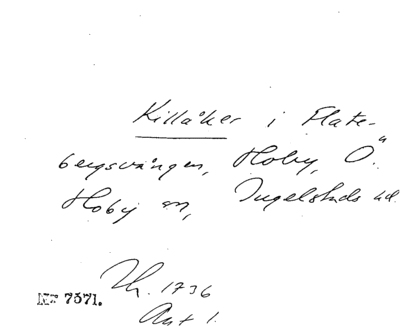 Killåker i Flate-
bergsvången, Hoby, Ö.
Hoby sn, Ingelstads hd.
Lh. 1736
Akt 1.
Nr 7571.